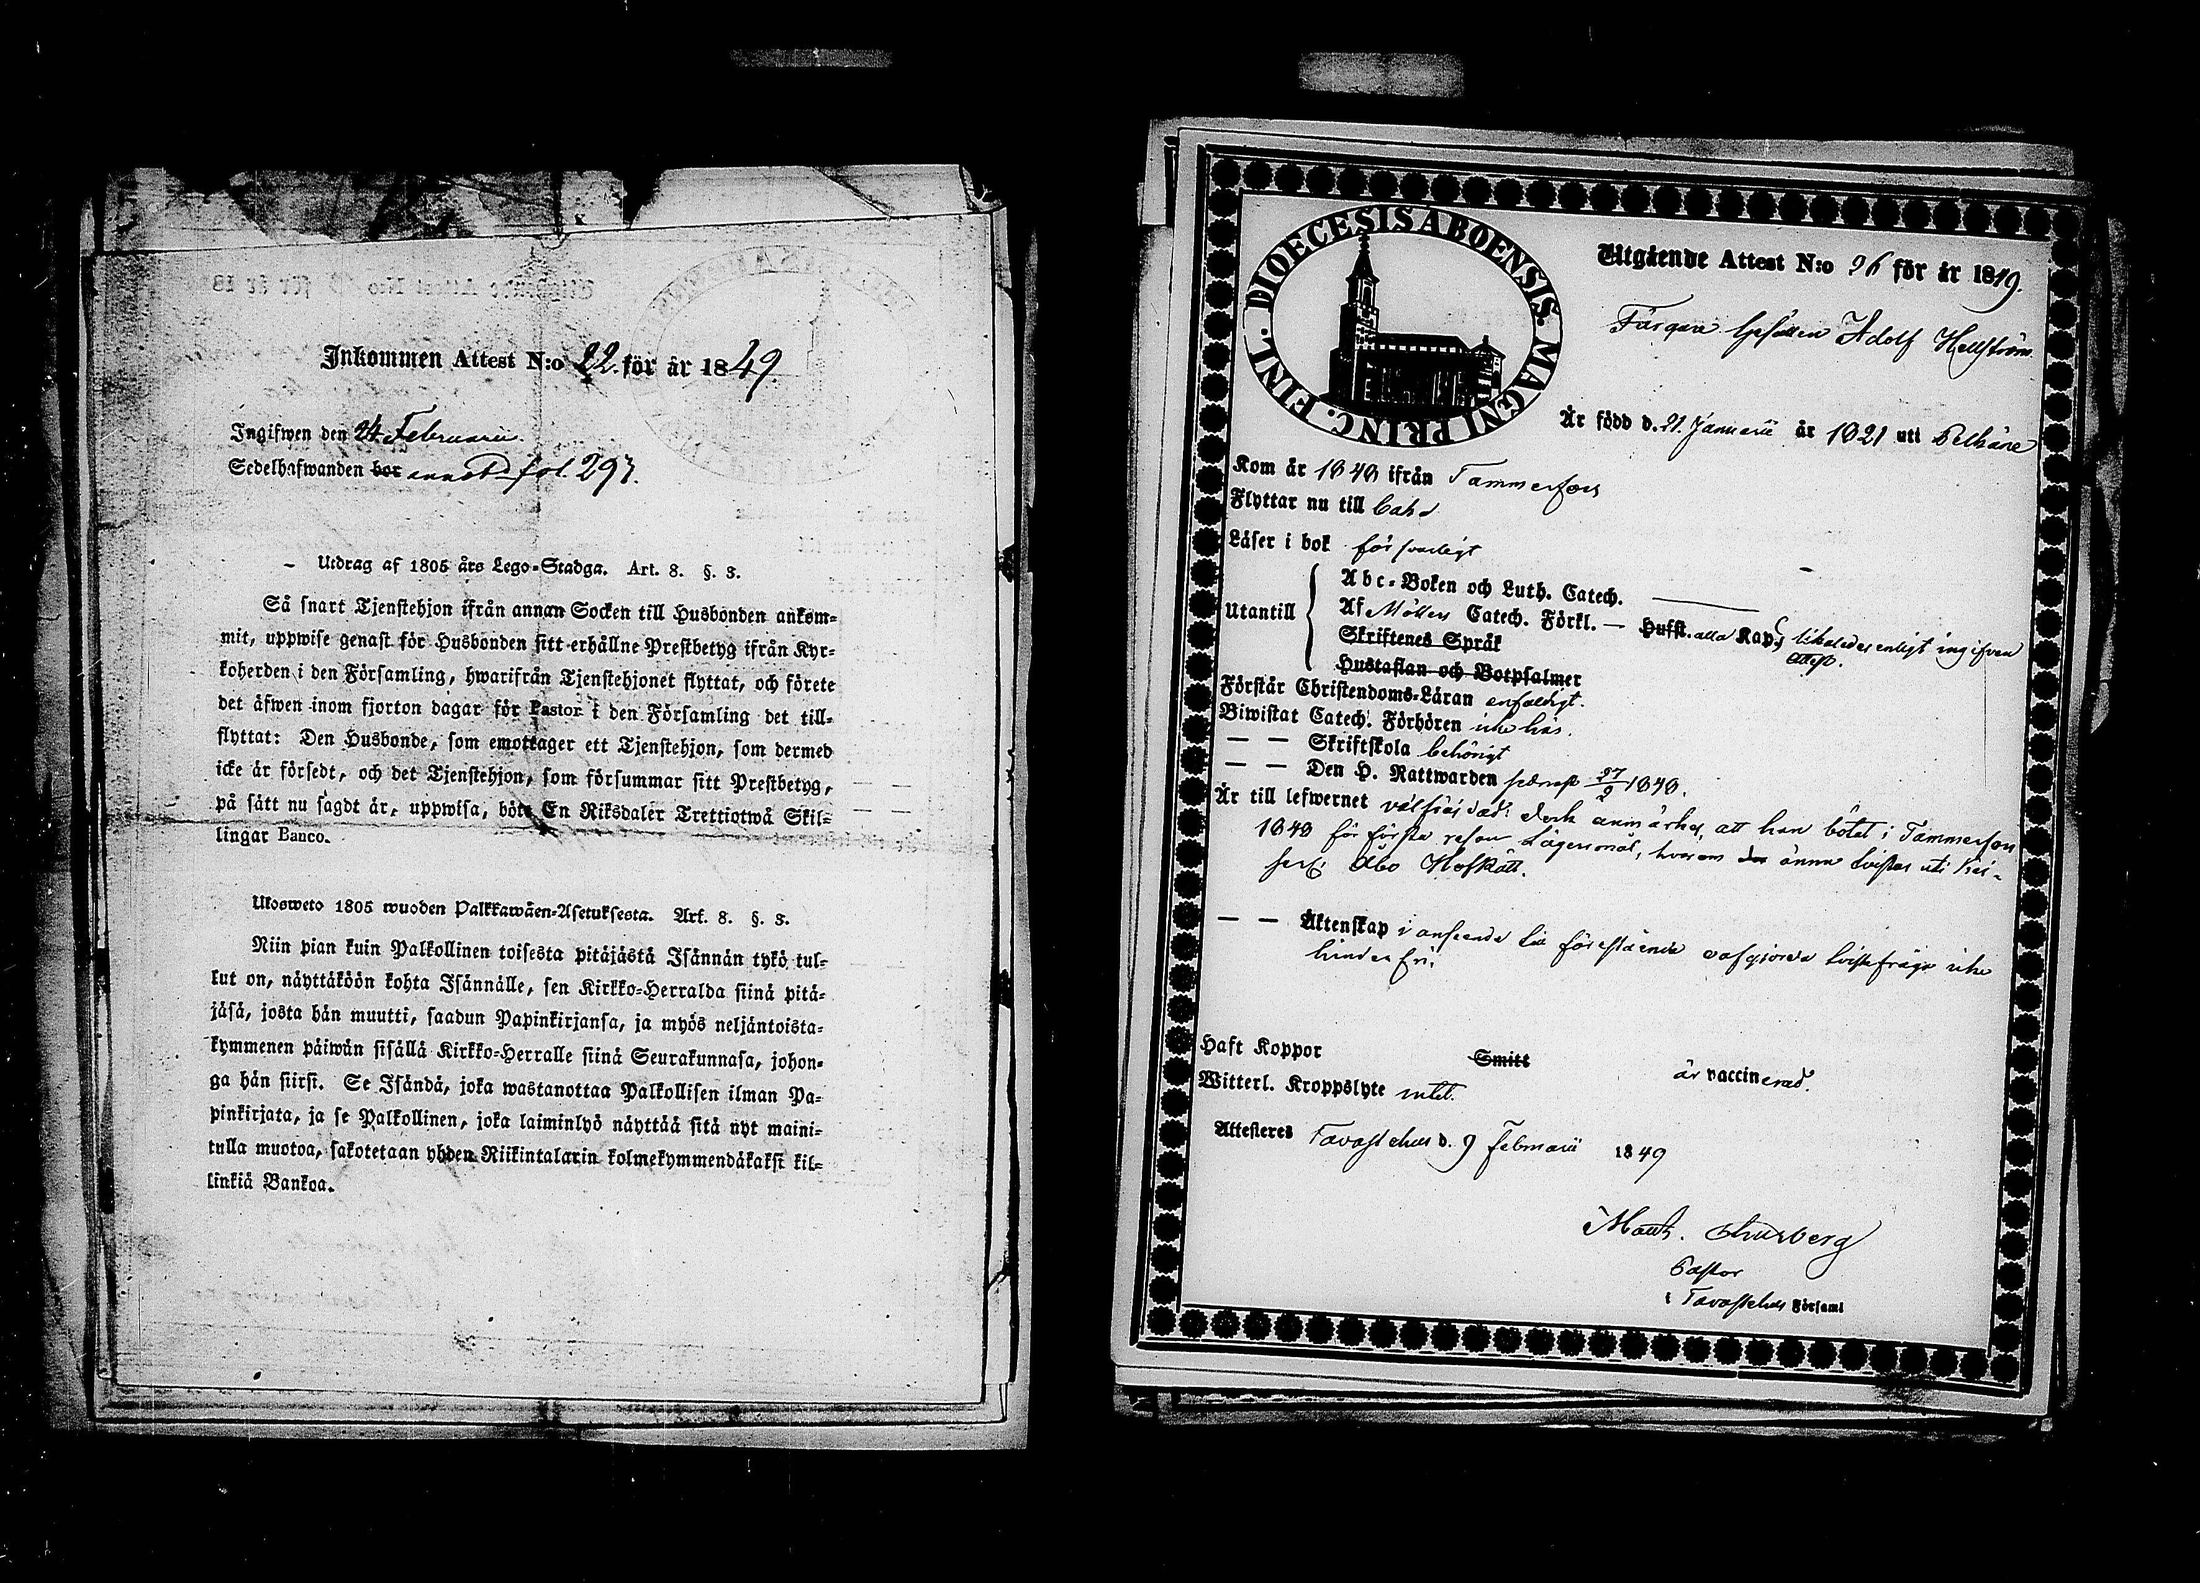 Inkommen Attest N:o 22. för år 1849
Ingifwen den 24 Februarii.
Sedelhafwanden bor fol. 297.
Utdrag af 1805 års Lego-Stadga. Art. 8. §. 3.
Så snart Tjenstehjon ifrån annan Socken till Husbonden ankom-
mit, uppwise genast för Husbonden sitt erhållne Prestbetyg ifrån Kyr-
koherden i den Församling, hwarifrån Tjenstehjonet flyttat, och förete
det äfwen inom fjorton dagar för Pastor i den Församling det till-
flyttat: Den Husbonde, som emottager ett Tjenstehjon, som dermed
icke är försedt, och det Tjenstehjon, som försummar sitt Prestbetyg,
på sätt nu sagdt är, uppwisa, böte En Riksdaler Trettiotwå Skil-
lingar Banco.
Ulosweto 1805 wuoden Palkkawäen-Asetuksesta. Art. 8. §. 3.
Niin pian kuin Palkollinen toisesta pitäjästä Isännän tykö tul-
lut on, näyttäköön kohta Isännälle, sen Kirkko-Herralda siinä pitä-
jäsä, josta hän muutti, saadun Papinkirjansa, ja myös neljäntoista-
kymmenen päiwän sisällä Kirkko-Herralle siinä Seurakunnasa, johon-
ga hän siirsi. Se Isändä, joka wastanottaa Palkollisen ilman Pa-
pinkirjata, ja se Palkollinen, joka laiminlyö näyttää sitä nyt maini-
tulla muotoa, sakotetaan yhden Riikintalarin kolmekymmendäkaksi kil-
linkiä Bankoa.
DIOECESIS ABOENSIS. MAGNI PRINC. FINL.
Utgående Attest N:o 26 för år 1849.
Färgare Gesällen Adolf Hellström
Är född d. 21 Januarii år 1821 uti Pelkäne
Kom år 1848 ifrån Tammerfors
Flyttar nu till
Läser i bok försvarligt
Utantill
Abc-Boken och Luth. Catech.
Af Möllers Catech. Förkl. — Hufst. alla Kap. likaledes enligt ingifven
attest.
Skriftenes Språk
Hustaflan och Botpsalmer
Förstår Christendoms-Läran enfaldigt.
Biwistat Catech. Förhören icke här.
— — Skriftskola behörigt
— — Den H. Nattwarden sednast 27/2 1848.
Är till lefwernet välfräjdad: dock anmärkes, att han bötat i Tammerfors
1848 för första resan Lägersmål, hvarom ännu tvistas uti Kej-
serl: Åbo HofRätt.
— — Äktenskap i anseende till förestående oafgjorda tvistefråga icke
hinderfri.
Haft Koppor Smitt är vaccinerad.
Witterl. Kroppslyte intet.
Attesteres Tavastehus d. 9 Februarii 1849
Pastor
i Tavastehus Församl